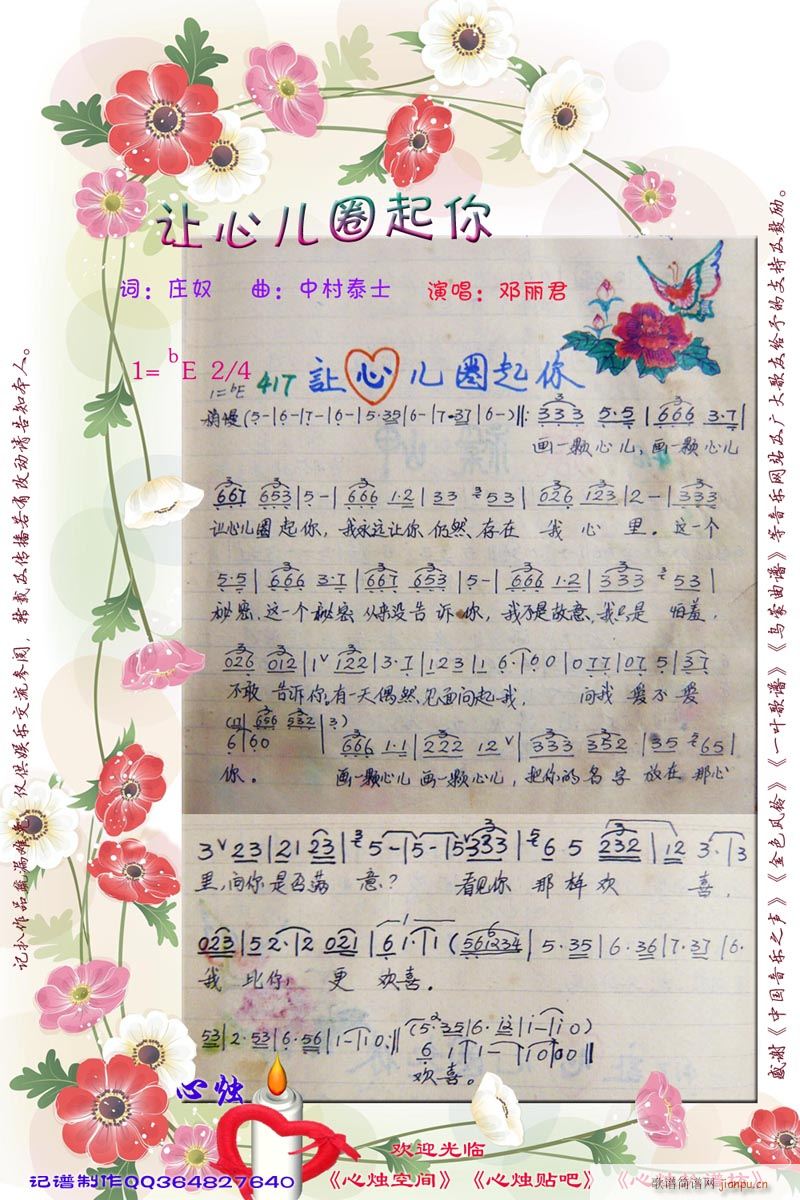 让心儿圈起你
词：庄奴 曲：中村泰士 演唱：邓丽君
1= bE 2/4
417 讓心儿圈起你
1=bE
稍慢 (5-|6-|7-|6-|5·35|6-|7·37|6-)‖: 333 5·5|666 3·7|
画一颗心儿，画一颗心儿
667 653|5-|666 1·2|33 353|026 123|2-|333
让心儿圈起你，我永远让你仍然存在我心里。这一个
5·5|666 3·7|667 653|5-|666 1·2|333 353|
秘密，这一个秘密从来没告诉你，我不是故意，我只是怕羞，
026 012|1 122|3·7|123|1 6·|60|077|07 5|37
不敢告诉你。有一天偶然见面问起我， 问我爱不爱
656 532|3)
6|60 666 1·1|222 12|333 352|35 265|
你。 画一颗心儿画一颗心儿，把你的名字放在那心
3 23|21 23|35-|5-|5333|56·5 232|12 3·|3
里，问你是否满意？ 看见你那样欢喜，
023|52·|2 021|61·|1 (561234|5·35|6·36|7·37|6·
我比你，更欢喜。
53|2·53|6·56|1-|10:‖ (5 35|6·
6 1|1-|10|00‖
欢喜。
心烛
欢迎光临
记谱制作QQ364827640
《心烛空间》《心烛贴吧》
歌谱简谱网
jianpu.cn
感谢《中国音乐之声》《金色风铃》《一叶歌谱》《乌蒙曲谱》等音乐网站及广大歌友给予的支持及鼓励。
记扒作品疏漏难免，仅供娱乐交流参阅，转载及传播若有改动请告知本人。